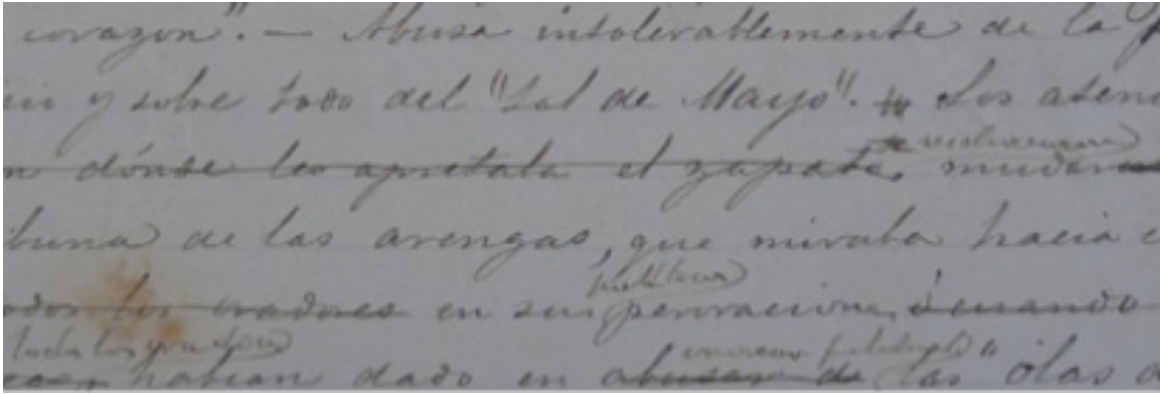 corazon". — Abusa intolerablemente de la
y sobre todo del "Sol de Mayo". Los aten
n dónde les apretaba el zapato, mudar
buna de las arengas, que miraba hacia
odos los oradores en sus peroraciones, cuando
todos los oradores
habian dado en abusar de las "olas